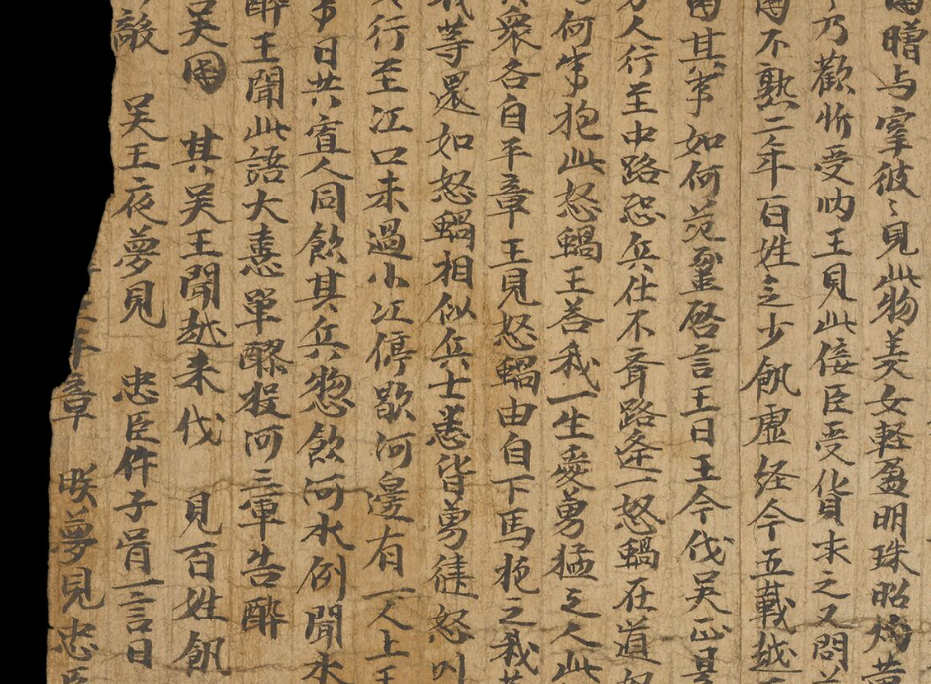 曾与宰彼〻見此物美女輕盈明珠昭灼黄
乃歡忻受納王見此佞臣受貨求之又問
不熟二年百姓乏少飢虛經今五載越王
其事如何范蠡啓言王曰王今伐吳正是
人行至中路恐兵仕不齊路逢一怒蝸在道
何索抱此怒蝸王答我一生愛勇猛之人此
衆各自平章王見怒蝸由自下馬抱之我等
我等還如怒蝸相似兵士悉皆勇健怒叫
行至江口未過小江停歇河邊有一人上王
日共寡人同飲其兵惣飲河水例聞水
醉王聞此語大憙單醪投河三軍告醉
吳國 其吳王聞越来伐 見百姓飢
敵 吳王夜夢見 忠臣伍子胥一言曰
章 朕夢見忠臣